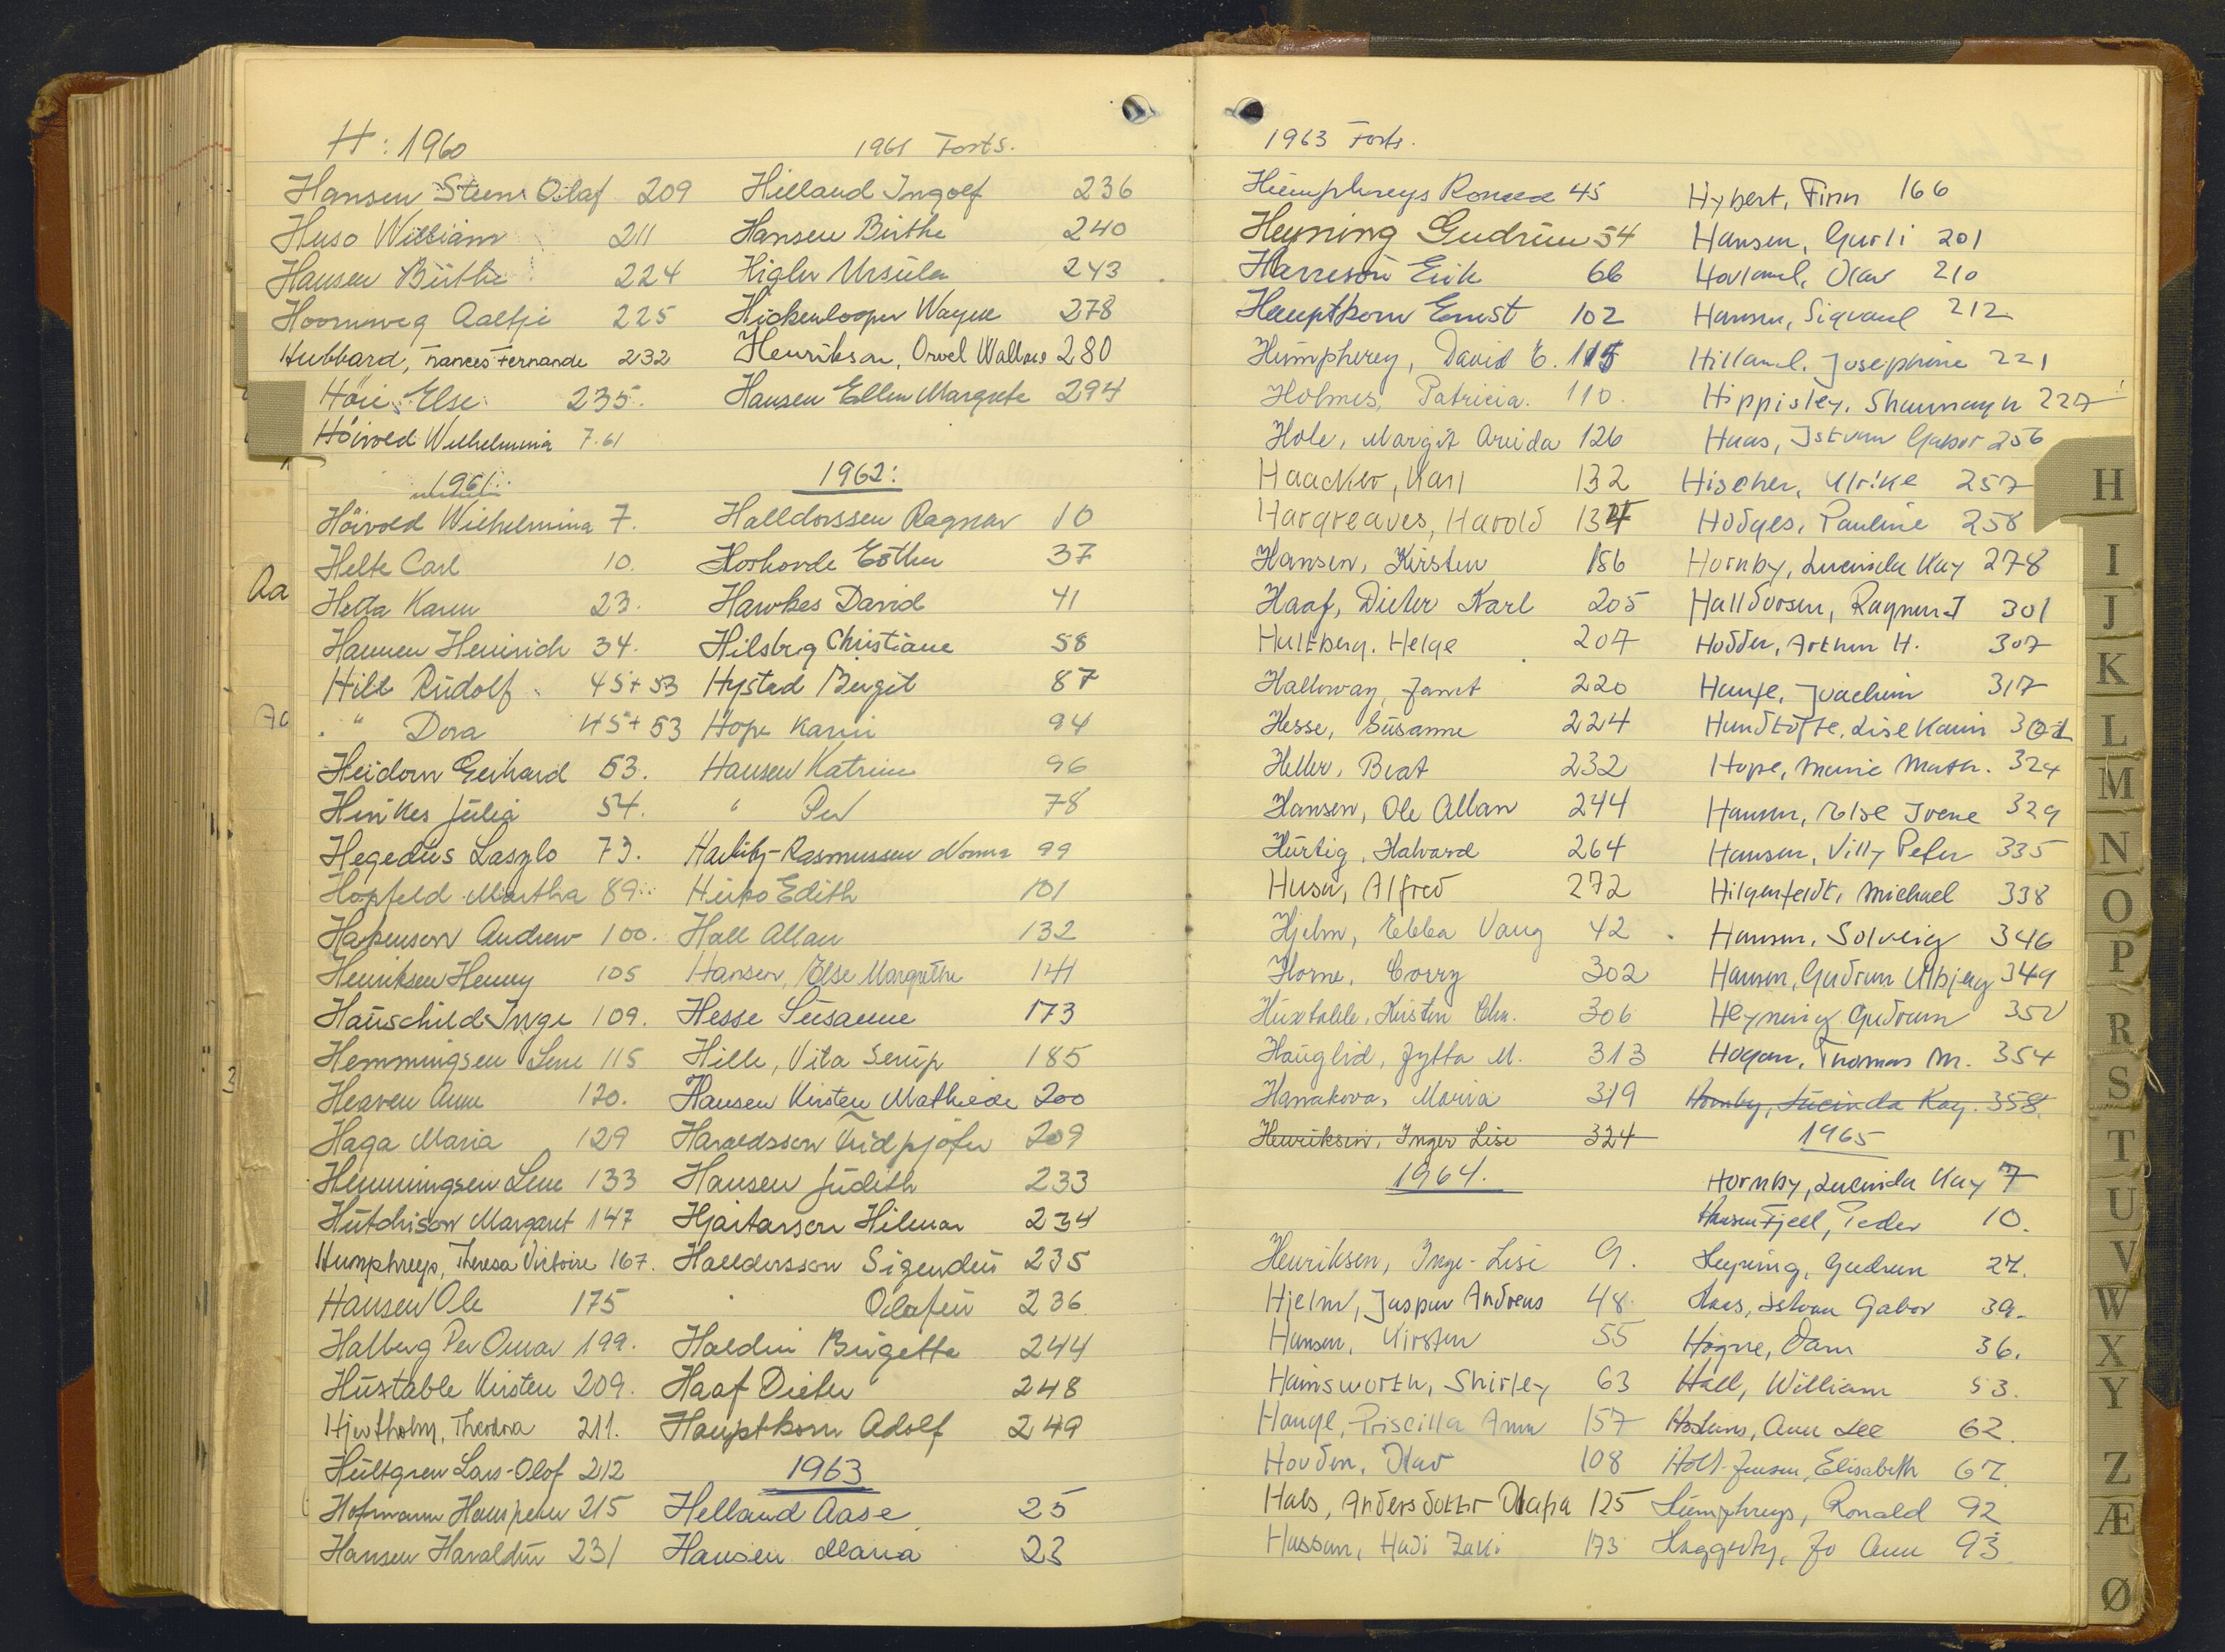 H: 1960
Hansen Steen Oslaf 209
Huso William 211
Hansen Birthe 224
Hoornweg Aaltje 225
Hubbard, Frances Fernande 232
Höie Else 235.
Höivold Wilhelmina 7.61
1961:
Höivold Wilhelmina 7.
Helte Carl 10.
Hetta Karen 23.
Hannen Heinrich 34.
Hill Rudolf 45+53
" Dora 45+53
Heidorn Gerhard 53.
Hinkes Julia 54.
Hegedüs Laszlo 73.
Hopfeld Martha 89.
Hakenson Andrew 100.
Henriksen Henny 105
Hauschild Inge 109.
Hemmingsen Lene 115
Heaven Anne 120.
Haga Maria 129
Hemmingsen Lene 133
Hutchison Margaret 147
Humphreys, Theresa Victoire 167.
Hansen Ole 175
Halberg Per Omar 199.
Huxtable Kirsten 209.
Hjertholm, Theodora 211.
Hultgren Lars-Olof 212
Hofmann Hanspeter 215
Hansen Haraldur 231
1961 Forts.
Hilland Ingolf 236
Hansen Birthe 240
Higler Ursula 243
Hickenlooper Wayne 278
Henrikson, Orvel Wallace 280
Hansen Ellen Margrete 294
1962:
Halldorssen Ragnar 10
Hoshovde Esther 37
Hawkes David 41
Hilsbrg Christiane 58
Hysted Bergit 87
Hope Karin 94
Hansen Katrine 96
" Per 78
-Rasmussen Norma 99
Heiko Edith 101
Hall Allan 132
Hansen, Else Margrethe 141
Hesse Susanne 173
Hille, Vita Serup 185
Hansen Kirsten Mathiede 200
Haraldsson Fridpjofur 209
Hansen Judith 233
Hjartarson Hilmar 234
Halldorsson Sigurdur 235
" Olafur 236
Haldin Birgette 244
Haaf Dieter 248
Hauptkorn Adolf 249
1963
Helland Aase 25
Hansen Maria 23
1963 Forts.
Humphreys Ronald 45
Heyning Gudrun 54
Harreson Erik 66
Hauptkorn Ernst 102
Humpherey, David E. 115
Holmes, Patricia. 110.
Hole, Margit Arvida 126
Haacker, Karl 132
Hargreaves, Harold 134
Hansen, Kirsten 156
Haaf, Dieter Karl 205
Hultberg, Helge 207
Halloway, Janet 220
Hesse, Susanne 224
Heller, Beat 232
Hansen, Ole Allan 244
Hürtig, Halvard 264
Husa, Alfred 272
Hjelm, Ebba Vang 42
Horne, Corry 302
Huxtable, Kirsten Chr. 306
Hauglid, Jytta M. 313
Hanakova, Maria 319
Henriksen, Inger Lise 324
1964.
Henriksen, Inge-Lise 9.
Hjelm, Jesper Andreas 48
Hansen, Kirsten 55
Hainsworth, Shirley 63
Haugl, Priscilla Ann 157
Hovden, Olav 108
Hals, Andersdotter Olapa 125
Hassan, Hadi Zaki 173
Hybert, Finn 166
Hansen, Gurli 201
Hovland, Olav 210
Hansen, Sigvard 212
Hilland, Josephine 221
Hippisley, Shaunagh 227
Haas, Istvan Gabor 256
Hischer, Ulrike 257
Hodges, Pauline 258
Hornby, Lucinda Kay 278
Halldorsen, Ragnar J 301
Hodder, Arthur H. 307
Haufe, Joachim 317
Hundtofte, Lise Karin
Hope, Marie Math. 324
Hansen, Else Irene 329
Hansen, Villy Peter 335
Hilgenfeldt, Michael 338
Hansen, Solveig 346
Hansen, Gudrun Ulbjerg 349
Heyning Gudrun 350
Hogan, Thomas M. 354
Hornby, Lucinda Kay. 358.
1965
Hornby, Lucinda Kay 7
Hansen Fjell, Peder 10.
Heyning, Gudrun 27.
Haas, Istvan Gabor 39.
Høgne, Dam 36.
Hall, William 53.
Hoskins, Ann Lee 62.
Holt-Jensen, Elisabeth 67.
Humphreys, Ronald 92
Haggerty, Jo Ann 93.
Aa
H
I
J
K
L
M
N
O
P
R
S
T
U
V
W
X
Y
Z
Æ
Ø